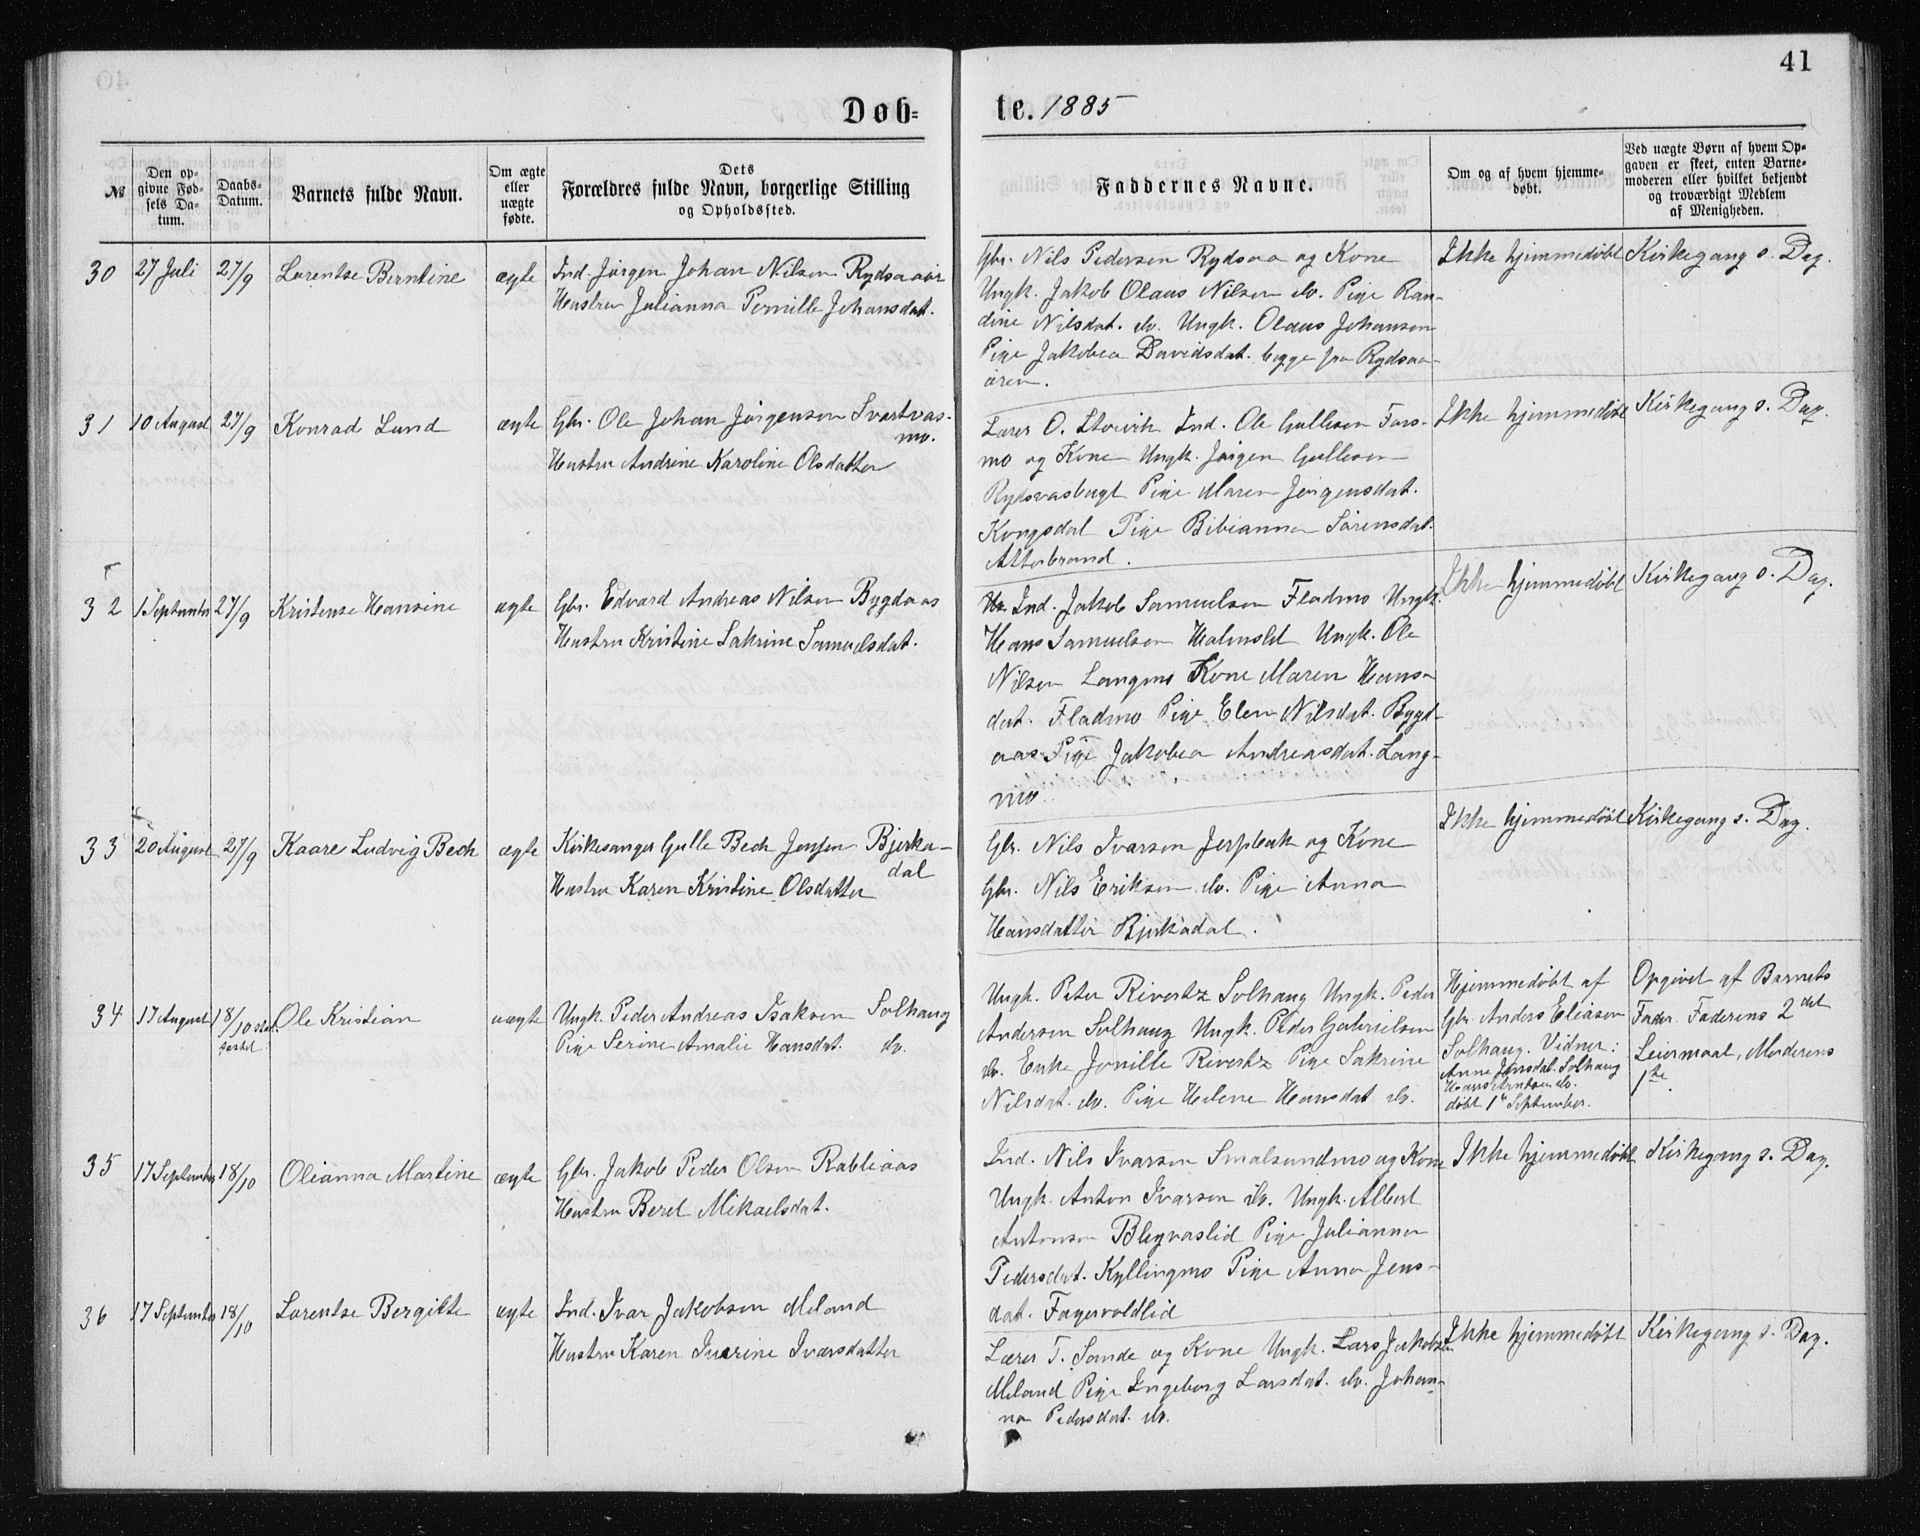 41
Døb-
te. 1885
№
Den op-
givne Fød-
sels Da-
tum.
Daabs-
Datum.
Barnets fulde Navn.
Om ægte
eller
uægte
fødte.
Dets
Forældres fulde Navn, borgerlige Stilling
og Opholdssted.
Faddernes Navne.
Om og af hvem hjemme-
døbt.
Ved uægte Børn af hvem Op-
gaven er skeet, enten Barne-
moderen eller hvilket bekjendt
og troværdigt Medlem
af Menigheden.
30
27 Juli
27/9
Lorentse Berntine
ægte
Ind. Jørgen Johan Nilsen Rydsaaør
Hustru Julianna Pernille Johansdat.
Gbr. Nils Pedersen Rydsaa og Kone
Ungk. Jakob Olaus Nilsen do. Pige Ran-
dine Nilsdat. do. Ungk. Olaus Johansen
Pige Jakobea Davidsdat. begge fra Rydsaa-
øren.
Ikke hjemmedøbt
Kirkegang s. Dag.
31
10 August
27/9
Konrad Lund
ægte
Gbr. Ole Johan Jørgensen Svartvas-
mo.
Hustru Andrine Karoline Olsdatter
Lærer O. Storvik Ind. Ole Gullesen Fors-
mo og Kone Ungk. Jørgen Gullesen
Rydsvasbugt Pige Maren Jørgensdat.
Kongsdal Pige Bibianna Sørensdat.
Alterbrand.
Ikke hjemmedøbt
Kirkegang s. Dag.
32
1 September
27/9
Kristense Hansine
ægte
Gbr. Edvard Andreas Nilsen Bygdaas
Hustru Kristine Sakrine Samuelsdat.
Ind. Jakob Samuelsen Fladmo Ungk.
Hans Samuelsen Halmslet Ungk. Ole
Nilsen Langmo Kone Maren Hans-
dat. Fladmo Pige Elen Nilsdat. Bygd-
aas Pige Jakobea Andreasdat. Lang-
mo.
Ikke hjemmedøbt
Kirkegang s. Dag.
33
20 August
27/9
Kaare Ludvig Bech
ægte
Kirkesanger Gulle Bech Jensen Bjerka-
dal
Hustru Karen Kristine Olsdatter
Gbr. Nils Ivarsen Jerpbak og Kone
Gbr. Nils Eriksen do. Pige Anna
Hansdatter Bjerkadal.
Ikke hjemmedøbt
Kirkegang s. Dag.
34
17 August
18/10
Ole Kristian
uægte
Ungk. Peder Andreas Isaksen Solhaug
Pige Serine Amalie Hansdat. do.
Ungk. Peter Rivertz Solhaug Ungk. Peder
Andersen Solhaug Ungk. Peder Gabrielsen
do. Enke Jonille Rivertz Pige Sakrine
Nilsdat. do. Pige Helene Hansdat do.
Hjemmedøbt af
Gbr. Anders Eliasen
Solhaug. Vidner:
Anne Jensdat. Solhaug
Hans Arntsen do.
døbt 1te September.
Opgivet af Barnets
Fader. Faderens 2det
Leiermaal, Moderens
1te.
35
17 September
18/10
Olianna Martine
ægte
Gbr. Jakob Peder Olsen Rabliaas
Hustru Beret Mikaelsdat.
Ind. Nils Ivarsen Smalsundmo og Kone
Ungk. Anton Ivarsen do. Ungk. Albert
Antonsen Blegvaslid Pige Julianna
Pedersdat. Kyllingmo Pige Anna Jens-
dat. Fagervoldlid
Ikke hjemmedøbt
Kirkegang s. Dag.
36
17 September
18/10
Lorentse Bergitte
ægte
Ind. Ivar Jakobsen Meland
Hustru Karen Iverine Iversdatter
Lærer T. Sande og Kone Ungk. Lars Jakobsen
Meland Pige Ingeborg Larsdat. do. Johan-
na Pedersdat. do.
Ikke hjemmedøbt
Kirkegang s. Dag.